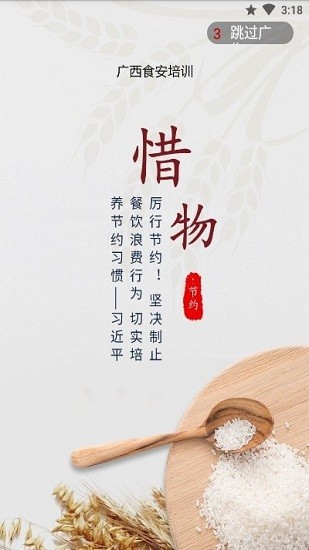 3:18
3 跳过广
广西食安培训
惜物
厉行节约！坚决制止
餐饮浪费行为 切实培
养节约习惯——习近平
·节约